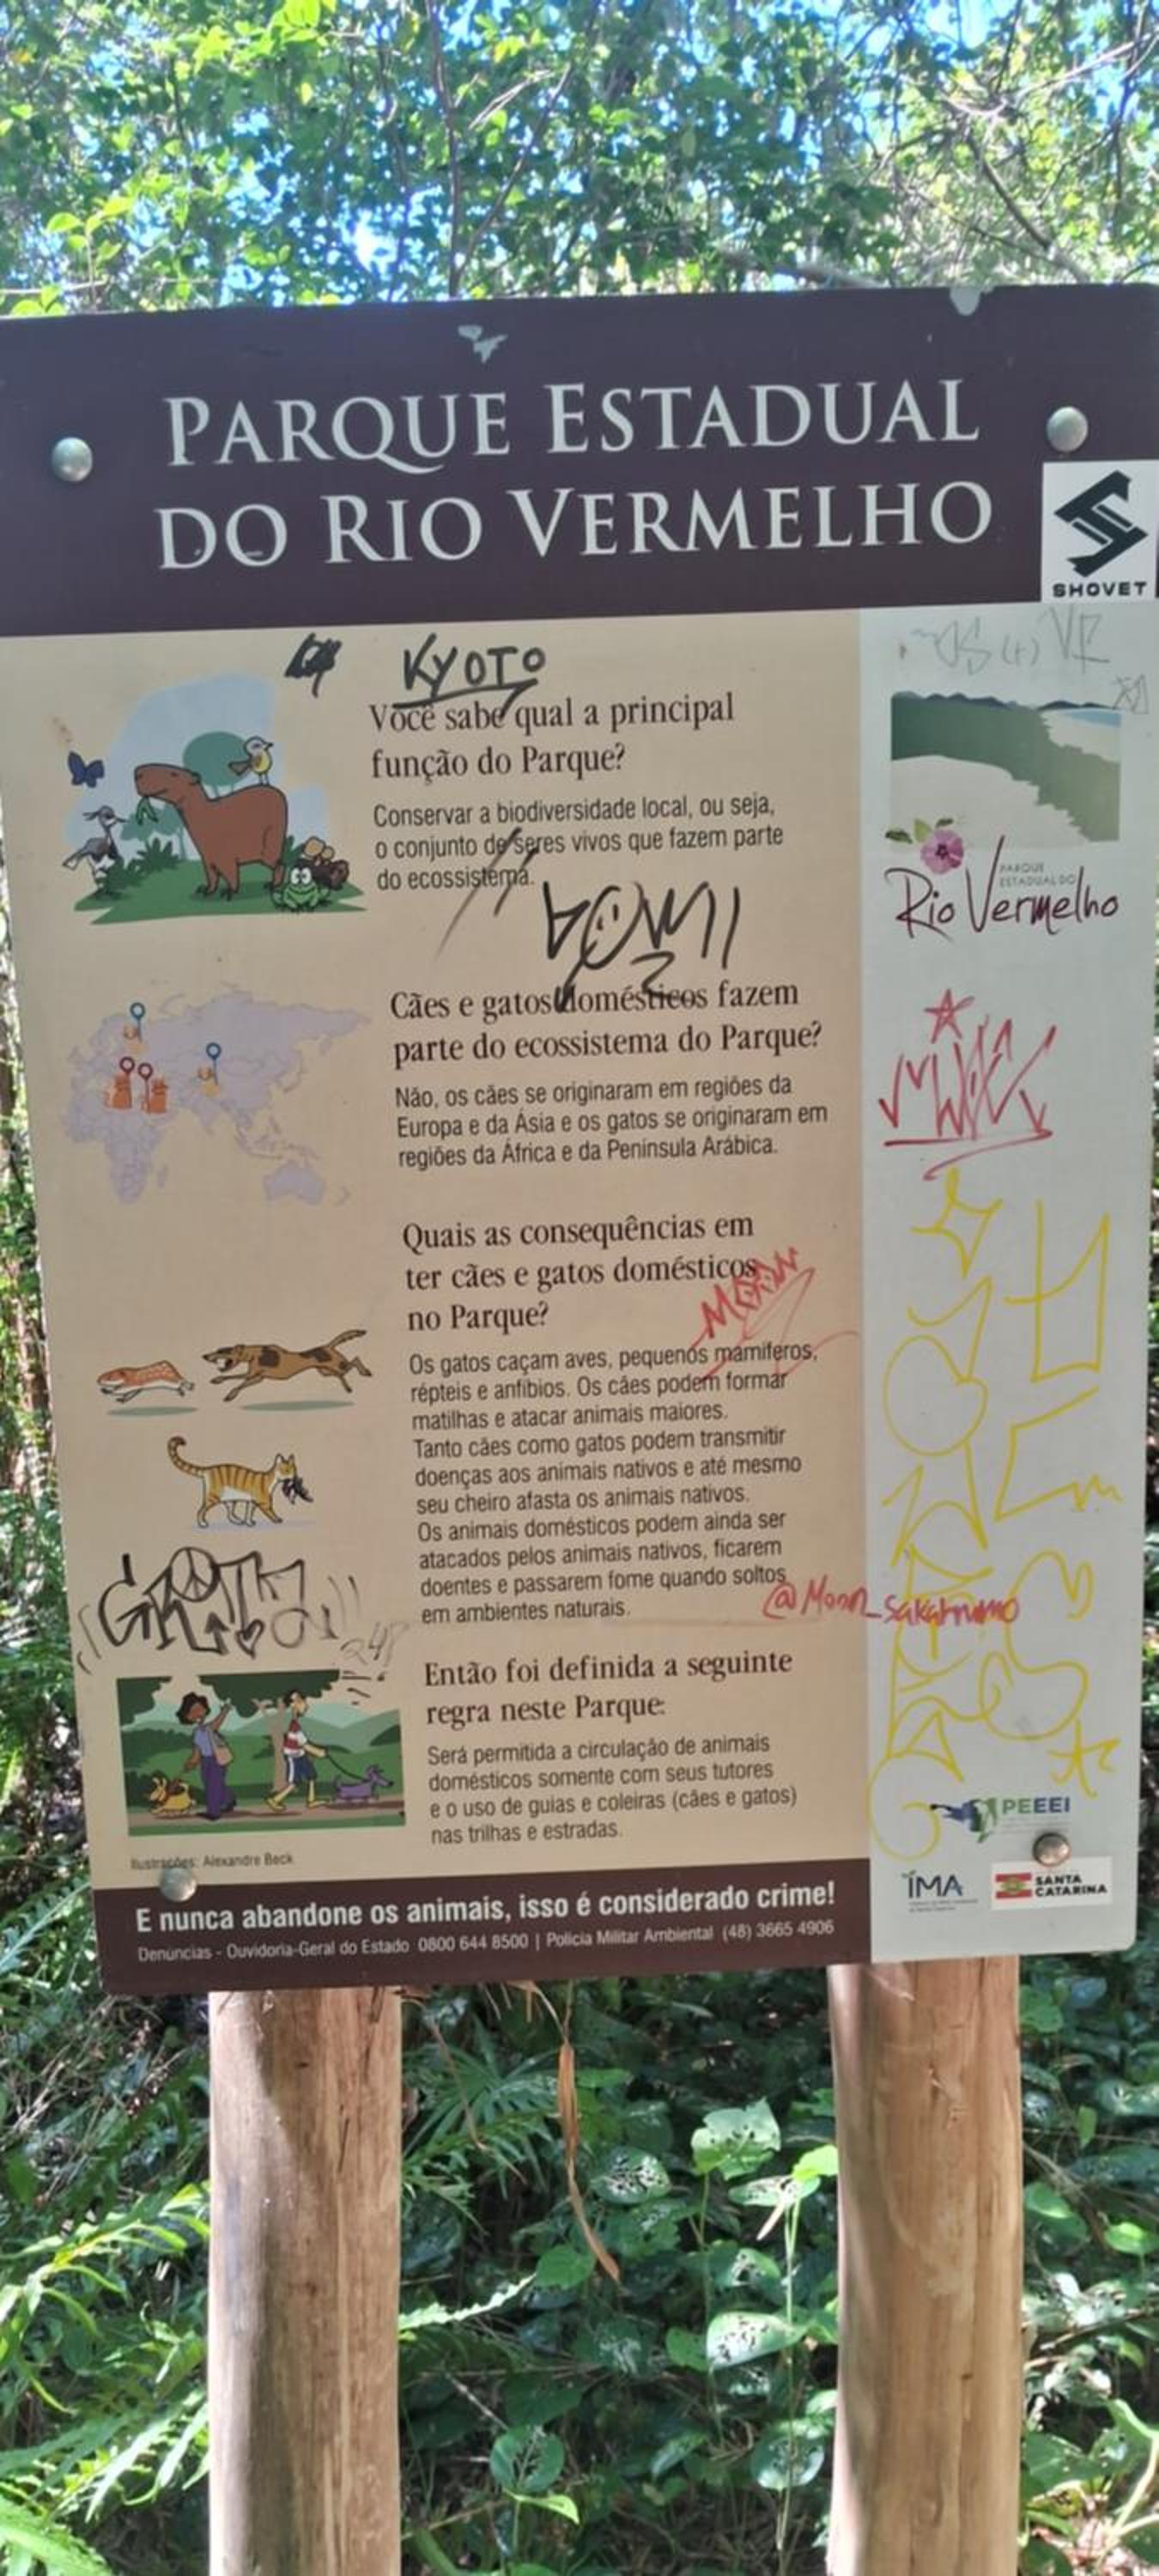 PARQUE ESTADUAL
DO RIO VERMELHO
SHOVET
KYOTO
Você sabe qual a principal
função do Parque?
Conservar a biodiversidade local, ou seja,
o conjunto de seres vivos que fazem parte
do ecossistema.
PARQUE
ESTADUAL DO
Rio Vermelho
Cães e gatos domésticos fazem
parte do ecossistema do Parque?
Não, os cães se originaram em regiões da
Europa e da Ásia e os gatos se originaram em
regiões da África e da Península Arábica.
Quais as consequências em
ter cães e gatos domésticos
no Parque?
MOON
Os gatos caçam aves, pequenos mamíferos,
répteis e anfíbios. Os cães podem formar
matilhas e atacar animais maiores.
Tanto cães como gatos podem transmitir
doenças aos animais nativos e até mesmo
seu cheiro afasta os animais nativos.
Os animais domésticos podem ainda ser
atacados pelos animais nativos, ficarem
doentes e passarem fome quando soltos
em ambientes naturais.
Então foi definida a seguinte
regra neste Parque:
Será permitida a circulação de animais
domésticos somente com seus tutores
e o uso de guias e coleiras (cães e gatos)
nas trilhas e estradas.
Ilustrações: Alexandre Beck
PEEEI
IMA
SANTA
CATARINA
E nunca abandone os animais, isso é considerado crime!
Denúncias - Ouvidoria-Geral do Estado 0800 644 8500 | Polícia Militar Ambiental (48) 3665 4906